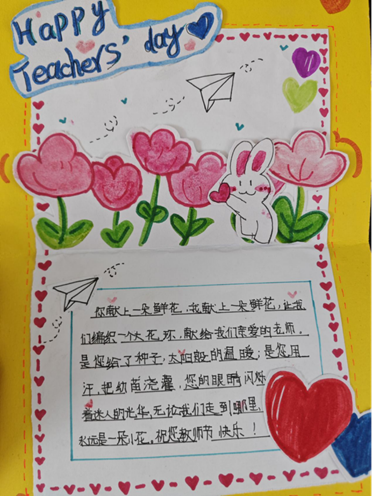 Happy
Teachers' day
你献上一朵鲜花，我献上一朵鲜花，让我
们编织一个大花环，献给我们亲爱的老师，
是您给了种子，太阳般的温暖；是您用
汗，把幼苗浇灌，您的眼睛闪烁
着迷人的光华，无论我们走到哪里，
永远是一朵小花，祝您教师节快乐！